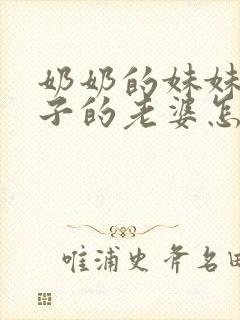 奶奶的妹妹
子的老婆怎
唯浦史斧名田